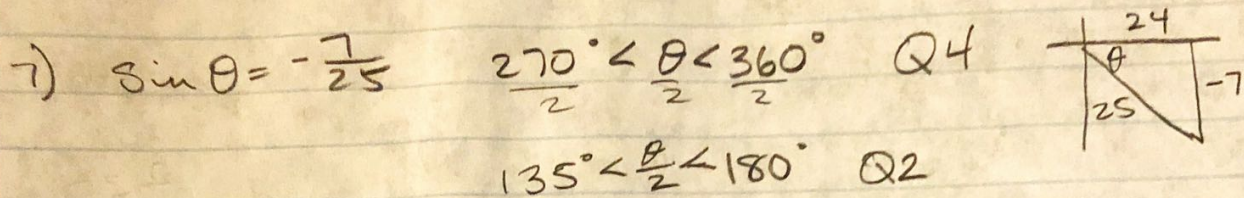 7) sin θ = -7/25 270°/2 < θ/2 < 360°/2 Q4
24
θ
25
-7
135° < θ/2 < 180° Q2